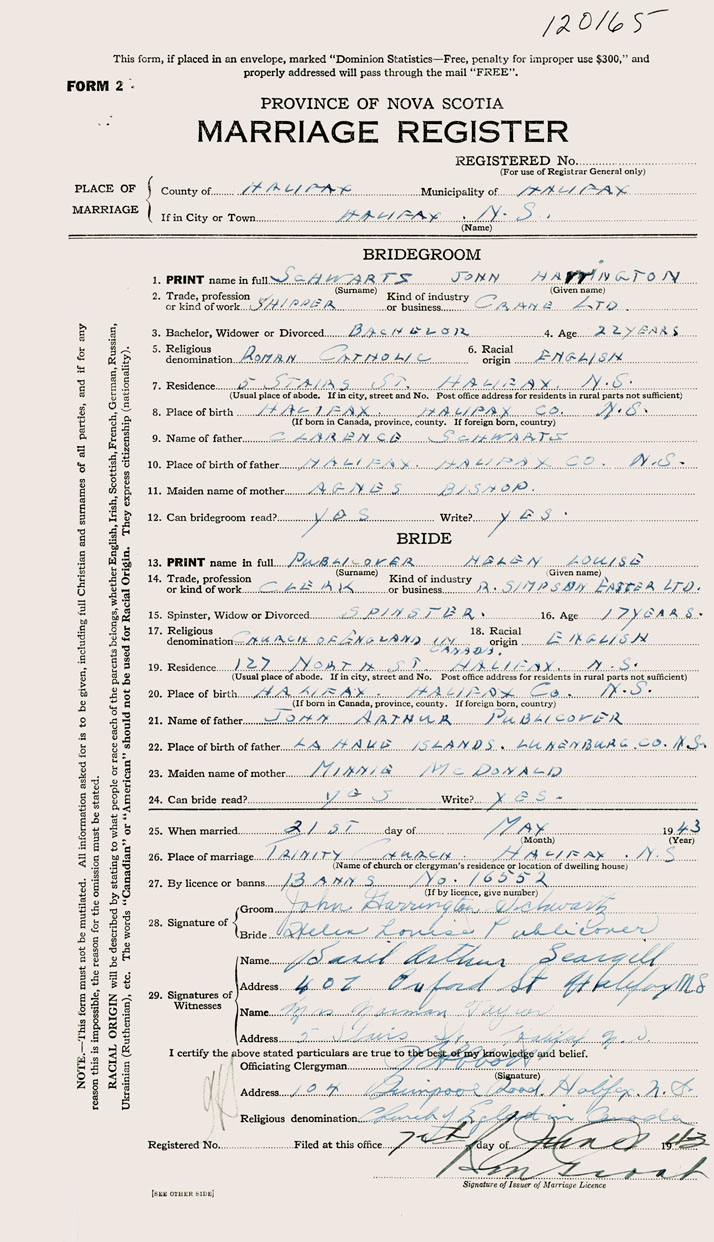 120165
This form, if placed in an envelope, marked "Dominion Statistics—Free, penalty for improper use $300," and
properly addressed will pass through the mail "FREE".
FORM 2
PROVINCE OF NOVA SCOTIA
MARRIAGE REGISTER
REGISTERED No.
(For use of Registrar General only)
PLACE OF MARRIAGE
County of HALIFAX Municipality of HALIFAX
If in City or Town HALIFAX. N.S.
(Name)
BRIDEGROOM
1. PRINT name in full SCHWARTS JOHN HARRINGTON
(Surname) (Given name)
2. Trade, profession or kind of work SHIPPER Kind of industry or business CRANE LTD.
3. Bachelor, Widower or Divorced BACHELOR 4. Age 22 YEARS
5. Religious denomination ROMAN CATHOLIC 6. Racial origin ENGLISH
7. Residence 5 STAIRS ST. HALIFAX. N.S.
(Usual place of abode. If in city, street and No. Post office address for residents in rural parts not sufficient)
8. Place of birth HALIFAX. HALIFAX CO. N.S.
(If born in Canada, province, county. If foreign born, country)
9. Name of father CLARENCE SCHWARTS
10. Place of birth of father HALIFAX. HALIFAX CO. N.S.
11. Maiden name of mother AGNES BISHOP.
12. Can bridegroom read? YES Write? YES.
BRIDE
13. PRINT name in full PUBLICOVER HELEN LOUISE
(Surname) (Given name)
14. Trade, profession or kind of work CLERK Kind of industry or business R. SIMPSON EASTER LTD.
15. Spinster, Widow or Divorced SPINSTER. 16. Age 17 YEARS.
17. Religious denomination CHURCH OF ENGLAND IN CANADA. 18. Racial origin ENGLISH
19. Residence 127 NORTH ST HALIFAX. N.S.
(Usual place of abode. If in city, street and No. Post office address for residents in rural parts not sufficient)
20. Place of birth HALIFAX. HALIFAX CO. N.S.
(If born in Canada, province, county. If foreign born, country)
21. Name of father JOHN ARTHUR PUBLICOVER
22. Place of birth of father LA HAVE ISLANDS. LUNENBURG. CO. N.S.
23. Maiden name of mother MINNIE McDONALD
24. Can bride read? YES Write? YES.
25. When married 21ST day of MAY 1943
(Month) (Year)
26. Place of marriage TRINITY CHURCH. HALIFAX. N.S
(Name of church or clergyman's residence or location of dwelling house)
27. By licence or banns BANNS No. 16552
(If by licence, give number)
28. Signature of
Groom John Harrington Schwartz
Bride Helen Louise Publicover
29. Signatures of Witnesses
Name Basil Arthur Seargell
Address 407 Oxford St Halifax NS
Name Mrs Norman Taylor
Address 5 Stairs St. Halifax N.S.
I certify the above stated particulars are true to the best of my knowledge and belief.
Officiating Clergyman
(Signature)
Address 104 Road. Halifax. N.S
Religious denomination Church of England in Canada
Registered No. Filed at this office 7th day of June 1943
Signature of Issuer of Marriage Licence
[SEE OTHER SIDE]
NOTE.—This form must not be mutilated. All information asked for is to be given, including full Christian and surnames of all parties, and if for any
reason this is impossible, the reason for the omission must be stated.
RACIAL ORIGIN will be described by stating to what people or race each of the parents belongs, whether English, Irish, Scottish, French, German, Russian,
Ukrainian (Ruthenian), etc. The words "Canadian" or "American" should not be used for Racial Origin. They express citizenship (nationality).